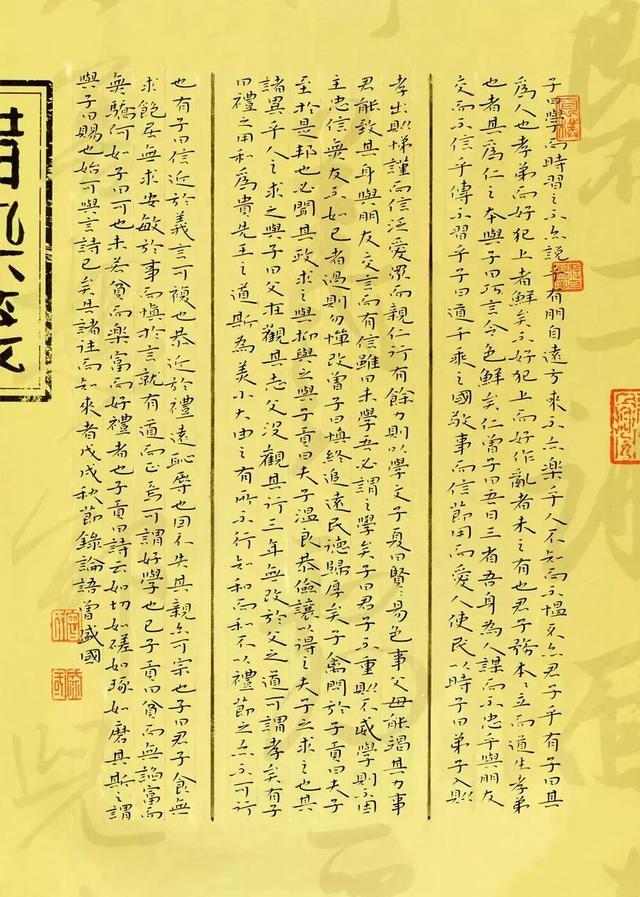 子曰學而時習之不亦説乎有朋自遠方來不亦楽乎人不知而不愠不亦君子乎有子曰其
爲人也孝弟而好犯上者鮮矣不好犯上而好作亂者未之有也君子務本〻立而道生孝弟
也者其爲仁之本與子曰巧言令色鮮矣仁曾子曰吾日三省吾身為人謀而不忠乎與朋友
交而不信乎傳不習乎子曰道千乘之國敬事而信節用而愛人使民以時子曰弟子入則
孝出則悌謹而信泛愛眾而親仁行有餘力則以學文子夏曰賢〻易色事父母能竭其力事
君能致其身與朋友交言而有信雖曰未學吾必謂之學矣子曰君子不重則不威學則不固
主忠信無友不如己者過則勿憚改曾子曰慎終追遠民德歸厚矣子禽問於子貢曰夫子
至於是邦也必聞其政求之與抑與之與子貢曰夫子溫良恭儉讓以得之夫子之求之也其
諸異乎人之求之與子曰父在觀其志父没觀其行三年無改於父之道可謂孝矣有子
曰禮之用和爲貴先王之道斯為美小大由之有所不行知和而和不以禮節之亦不可行
也有子曰信近於義言可複也恭近於禮遠恥辱也因不失其親亦可宗也子曰君子食無
求飽居無求安敏於事而慎於言就有道而正焉可謂好學也已子貢曰貧而無諂富而
無驕何如子曰可也未若貧而楽富而好禮者也子貢曰詩云如切如磋如琢如磨其斯之謂
與子曰賜也始可與言詩已矣告諸往而知來者戊戌秋節錄論語曾盛國